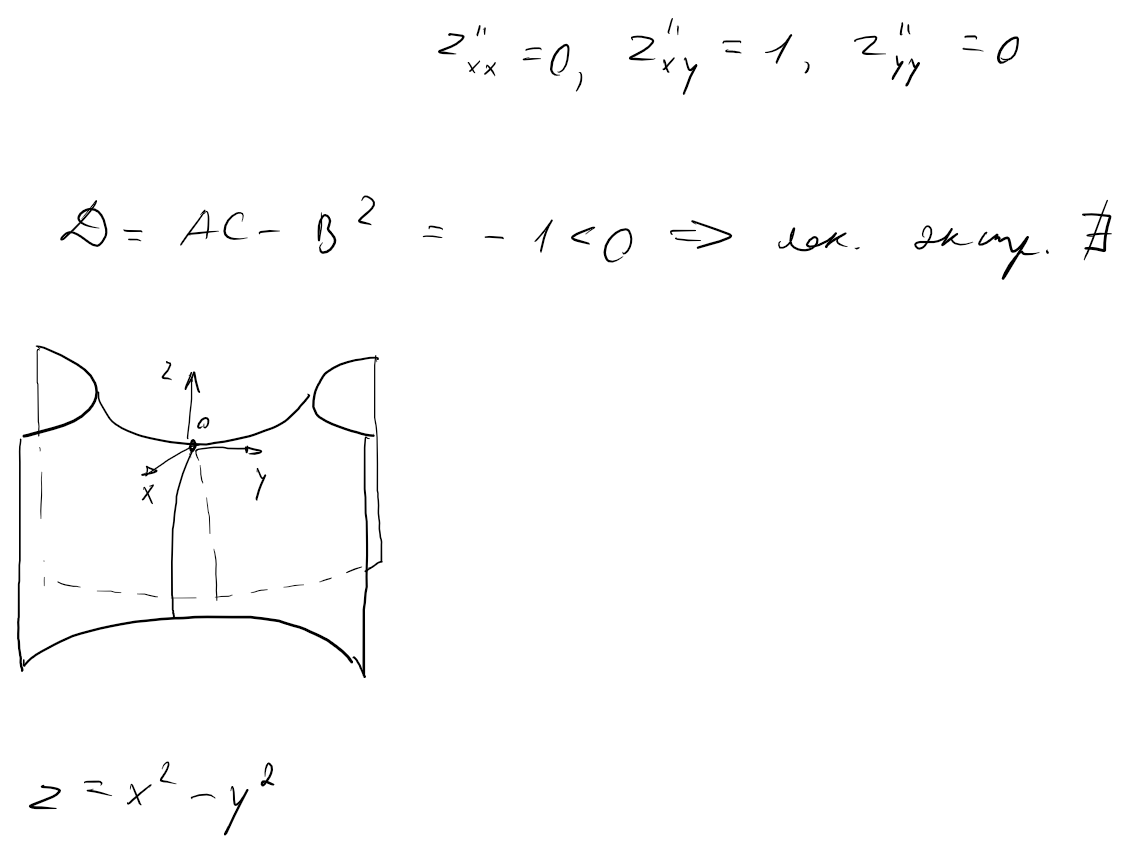 z''xx = 0, z''xy = 1, z''yy = 0
D = AC - B² = - 1 < 0 ⇒ лок. экстр. ∄
z
0
x
y
z = x² - y²